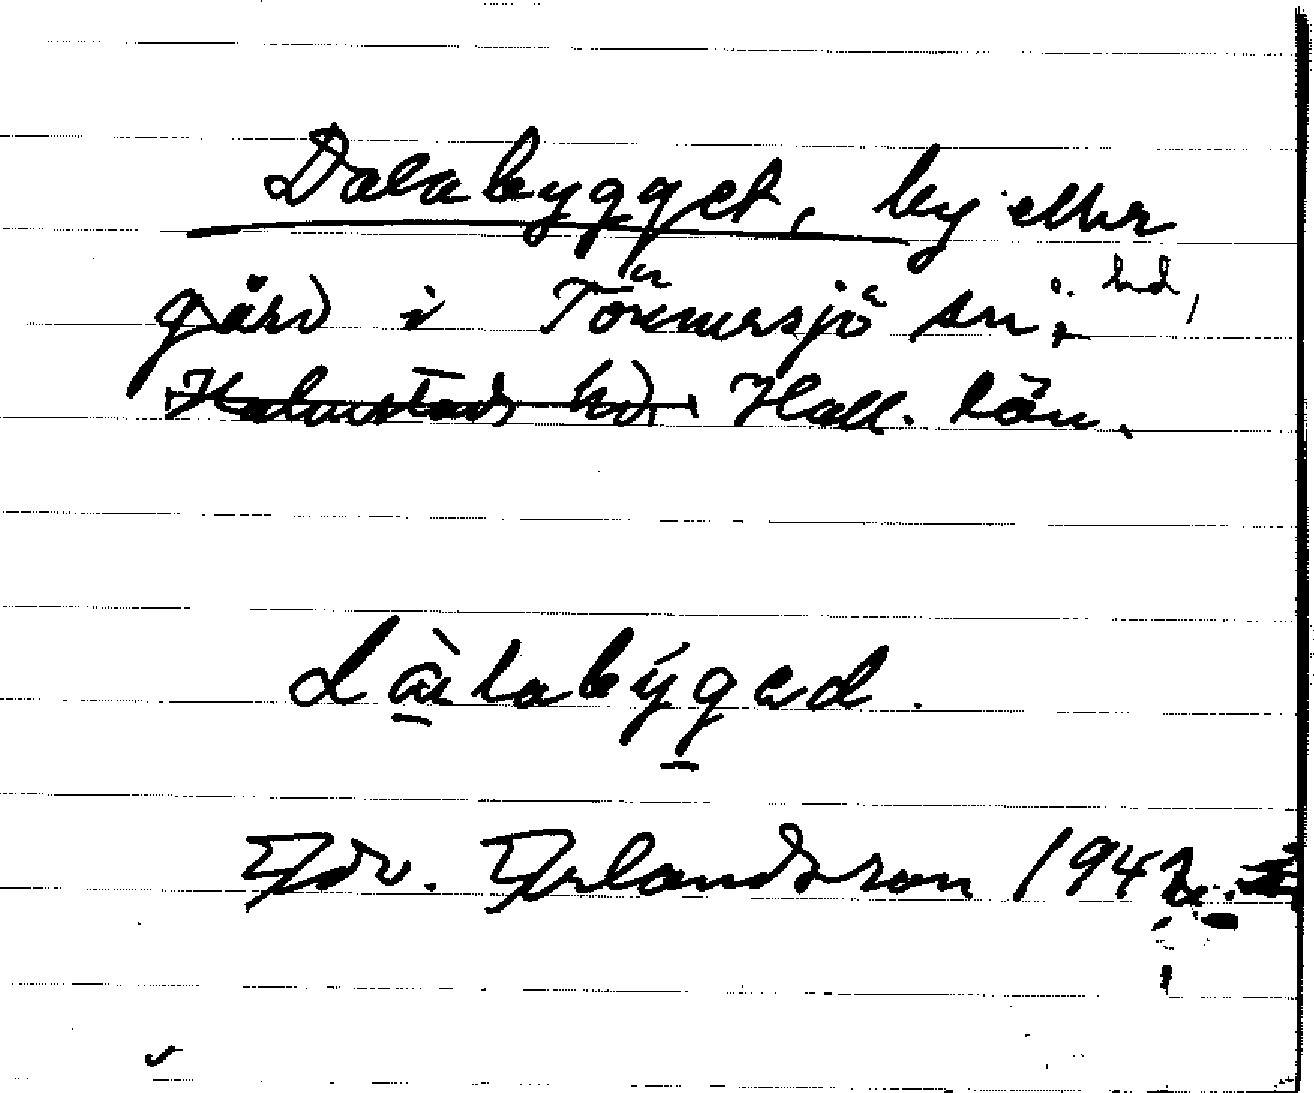 Dalabygget, by eller
gård i Tönnersjö sn, ö. hd,
Halmstads hd. Hall. län.
Edv. Erlandsson 1942